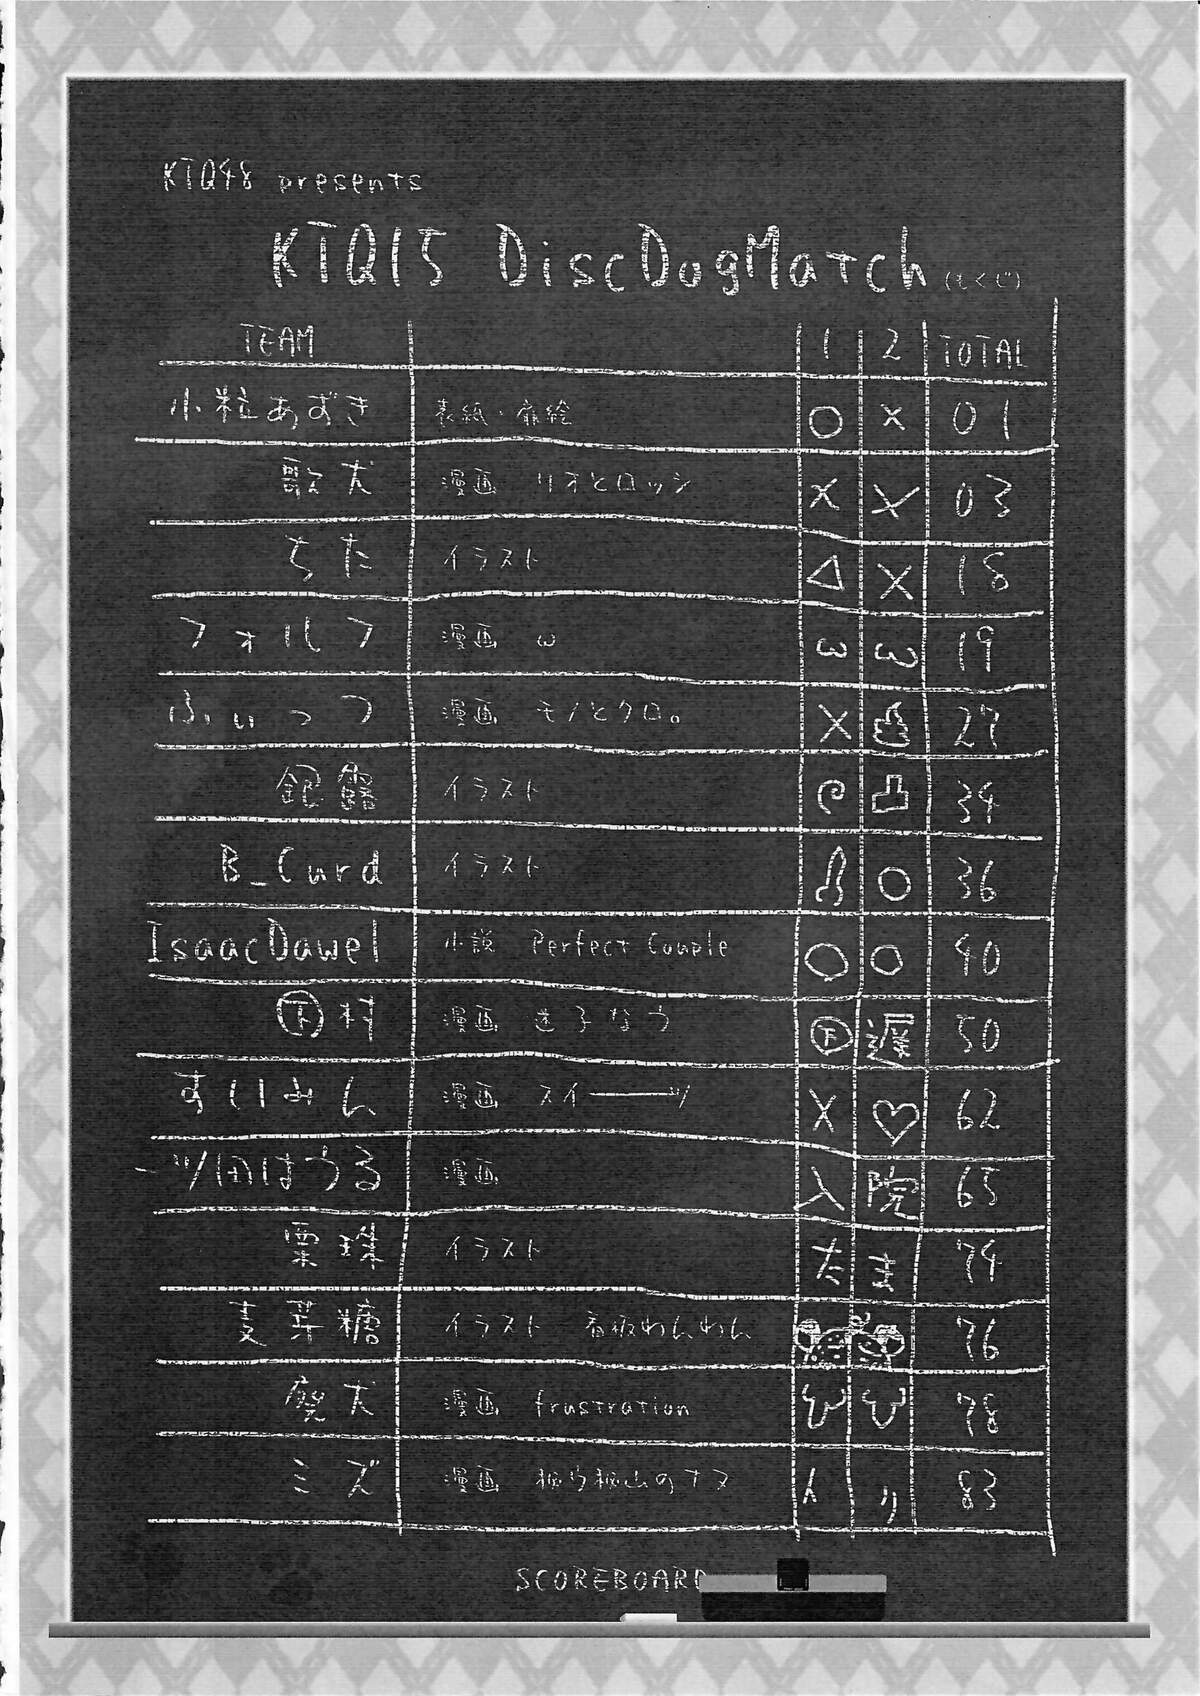 KTQ48 presents
KTQ15 DiscDogMatch (もくじ)
TEAM 1 2 TOTAL
小粒あずき 表紙・扉絵 ○ × 01
歌犬 漫画 リオとロッシ × × 03
ちた イラスト △ × 18
フォルフ 漫画 ω ω ω 19
ふぃっつ 漫画 モノとクロ。 × 27
銀露 イラスト 34
B_Curd イラスト ○ 36
IsaacDawel 小説 Perfect Couple ○ ○ 40
㊦村 漫画 迷子なう ㊦ 遅 50
すいみん 漫画 スイーーーツ × ♡ 62
一ツ田はうる 漫画 入 院 65
栗珠 イラスト たま 74
麦芽糖 イラスト 看板わんわん 76
犬 漫画 frustration 78
ミズ 漫画 のナヌ 83
SCOREBOARD